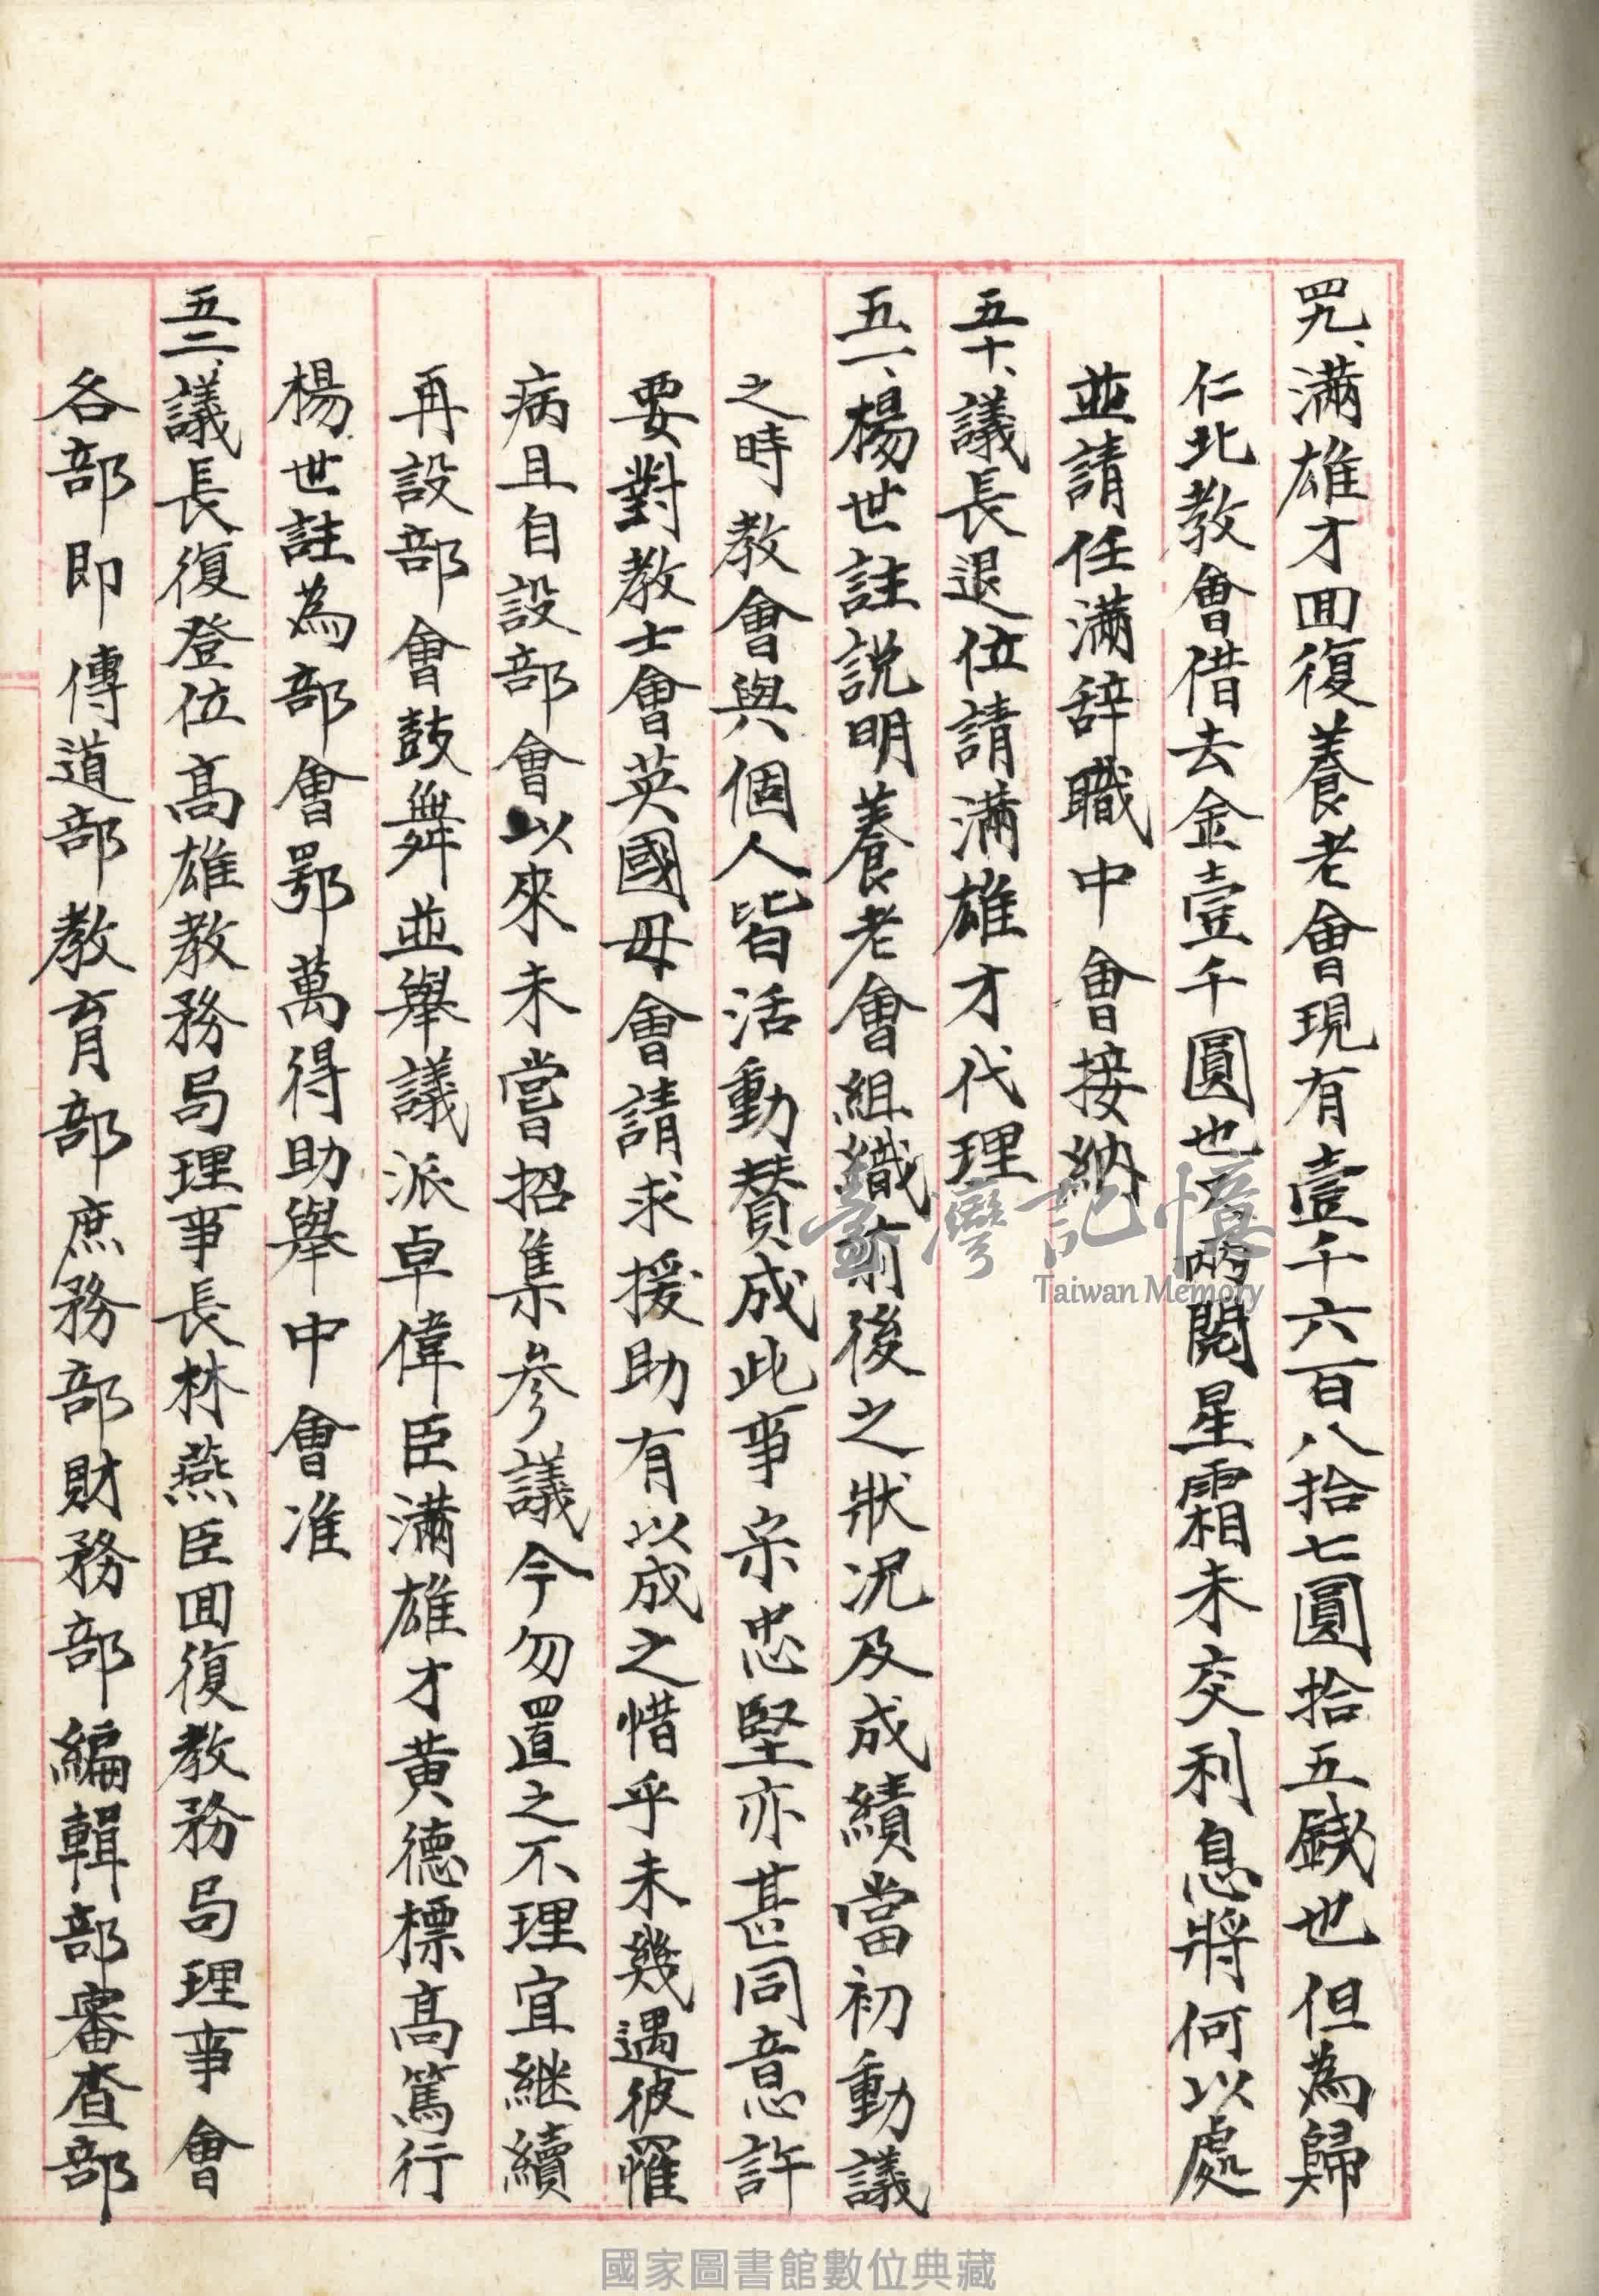 四九、滿雄才囬復養老會現有壹千六百八拾七圓拾五錢也但為歸
仁北教會借去金壹千圓也兩閱星霜未交利息將何以處
並請任滿辞職中會接納
五十、議長退位請滿雄才代理
五一、楊世註說明養老會組織前後之狀况及成績當初動議
之時教會與個人皆活動賛成此事宋忠堅亦甚同意許
要對教士會英國母會請求援助有以成之惜乎未幾遇彼罹
病且自設部會以來未嘗招集參議今勿置之不理宜継續
再設部會鼓舞並舉議派卓偉臣滿雄才黃德標高篤行
楊世註為部會鄂萬得助舉中會准
五二、議長復登位高雄教務局理事長林燕臣囬復教務局理事會
各部即傳道部教育部庶務部財務部編輯部審查部
臺灣記憶
Taiwan Memory
國家圖書館數位典藏